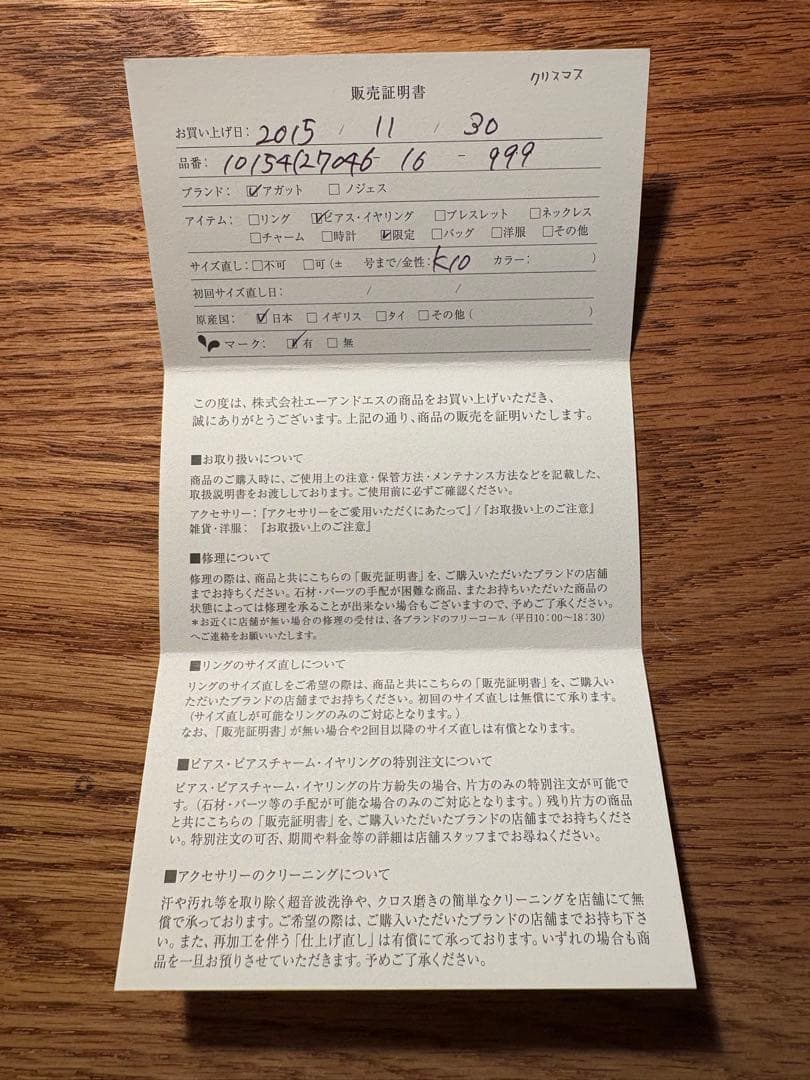 クリスマス
販売証明書
お買い上げ日: 2015 / 11 / 30
品番: 10154127046- 16 - 999
ブランド: ☑アガット □ノジェス
アイテム: □リング ☑ピアス・イヤリング □ブレスレット □ネックレス
□チャーム □時計 ☑限定 □バッグ □洋服 □その他
サイズ直し: □不可 □可(± 号まで/金性: K10 カラー: )
初回サイズ直し日: / /
原産国: ☑日本 □イギリス □タイ □その他( )
マーク: ☑有 □無
この度は、株式会社エーアンドエスの商品をお買い上げいただき、
誠にありがとうございます。上記の通り、商品の販売を証明いたします。
■お取り扱いについて
商品のご購入時に、ご使用上の注意・保管方法・メンテナンス方法などを記載した、
取扱説明書をお渡ししております。ご使用前に必ずご確認ください。
アクセサリー:『アクセサリーをご愛用いただくにあたって』/『お取扱い上のご注意』
雑貨・洋服: 『お取扱い上のご注意』
■修理について
修理の際は、商品と共にこちらの「販売証明書」を、ご購入いただいたブランドの店舗
までお持ちください。石材・パーツの手配が困難な商品、またお持ちいただいた商品の
状態によっては修理を承ることが出来ない場合もございますので、予めご了承ください。
*お近くに店舗が無い場合の修理の受付は、各ブランドのフリーコール(平日10:00〜18:30)
へご連絡をお願いいたします。
■リングのサイズ直しについて
リングのサイズ直しをご希望の際は、商品と共にこちらの「販売証明書」を、ご購入い
ただいたブランドの店舗までお持ちください。初回のサイズ直しは無償にて承ります。
(サイズ直しが可能なリングのみのご対応となります。)
なお、「販売証明書」が無い場合や2回目以降のサイズ直しは有償となります。
■ピアス・ピアスチャーム・イヤリングの特別注文について
ピアス・ピアスチャーム・イヤリングの片方紛失の場合、片方のみの特別注文が可能で
す。(石材・パーツ等の手配が可能な場合のみのご対応となります。)残り片方の商品
と共にこちらの「販売証明書」を、ご購入いただいたブランドの店舗までお持ちくださ
い。特別注文の可否、期間や料金等の詳細は店舗スタッフまでお尋ねください。
■アクセサリーのクリーニングについて
汗や汚れ等を取り除く超音波洗浄や、クロス磨きの簡単なクリーニングを店舗にて無
償で承っております。ご希望の際は、ご購入いただいたブランドの店舗までお持ち下さ
い。また、再加工を伴う「仕上げ直し」は有償にて承っております。いずれの場合も商
品を一旦お預りさせていただきます。予めご了承ください。